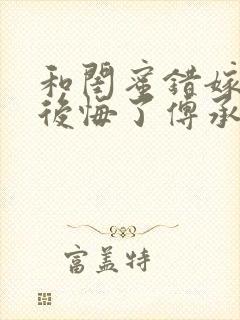 和閏蜜錯嫁
後悔了傅承
富蓋特